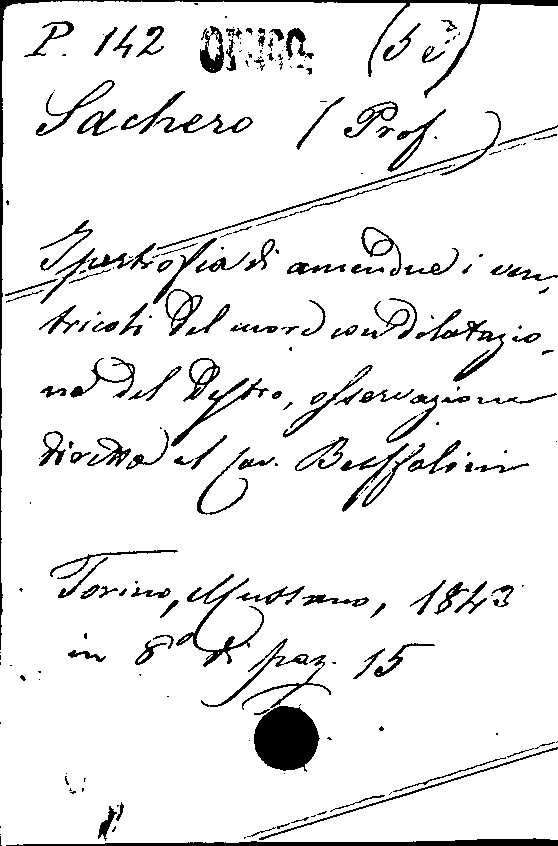 P. 142 (5 e)
Sachero (Prof.)
Ipertrofia di amendue i ven-
tricoli del cuore con dilatazio-
ne del destro, osservazione
diretta al Cav. Buffalini
Torino, Mussano, 1843
in 8° di pag. 15